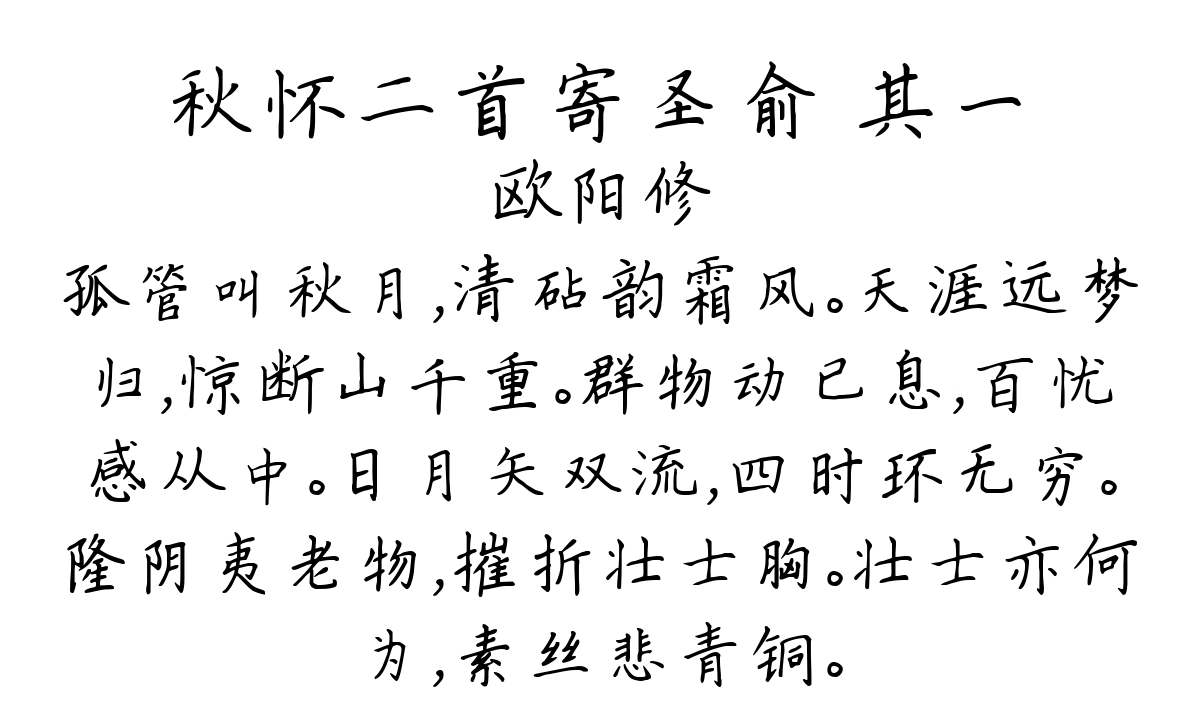 秋怀二首寄圣俞 其一
欧阳修
孤管叫秋月,清砧韵霜风。天涯远梦
归,惊断山千重。群物动已息,百忧
感从中。日月矢双流,四时环无穷。
隆阴夷老物,摧折壮士胸。壮士亦何
为,素丝悲青铜。